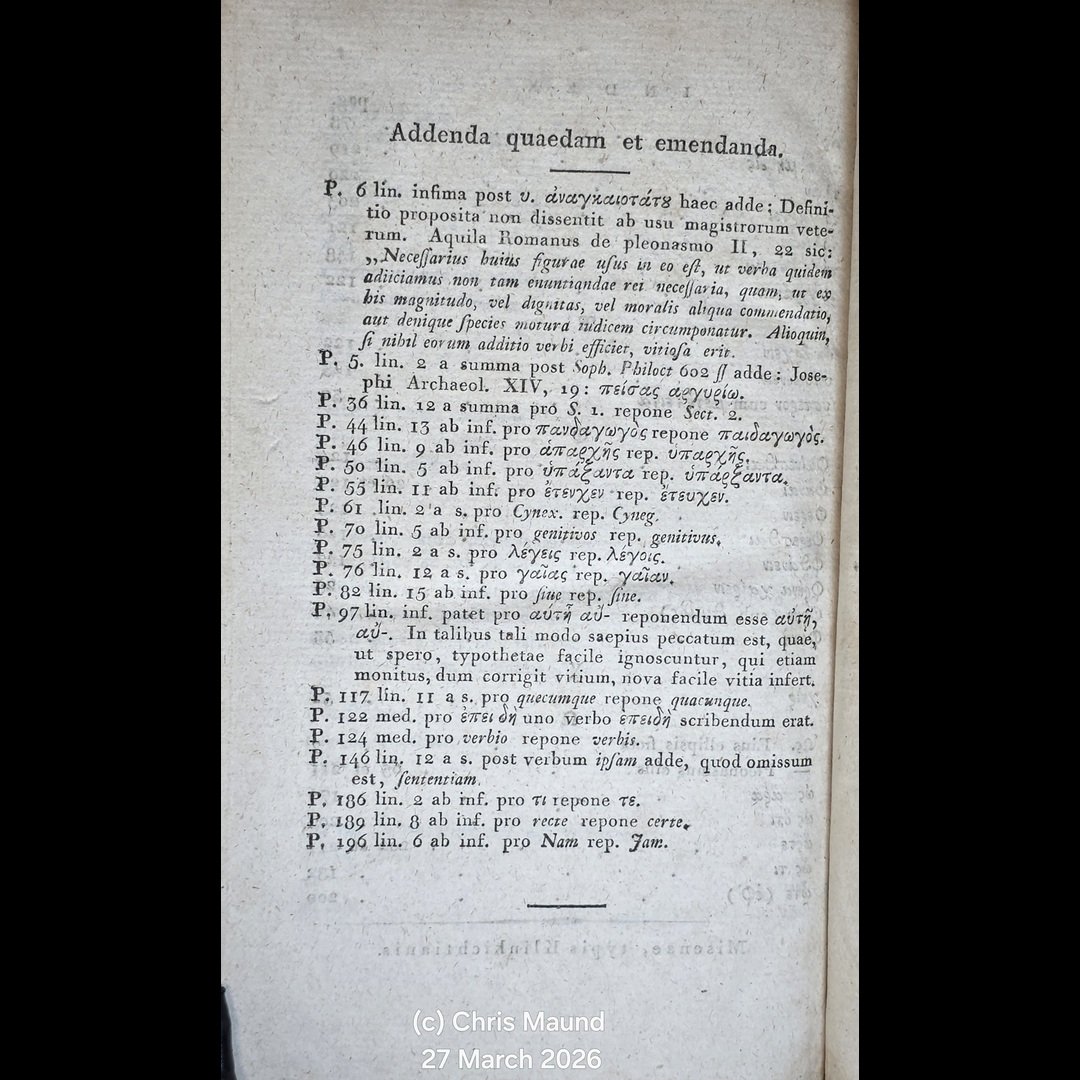 Addenda quaedam et emendanda.
P. 6 lin. infima post υ. ἀναγκαιοτάτȣ haec adde: Defini-
tio proposita non dissentit ab usu magistrorum vete-
rum. Aquila Romanus de pleonasmo II, 22 sic:
„Neceſſarius huius figurae uſus in eo eſt, ut verba quidem
adiiciamus non tam enuntiandae rei neceſſaria, quam, ut ex
his magnitudo, vel dignitas, vel moralis aliqua commendatio,
aut denique ſpecies motura iudicem circumponatur. Alioquin,
ſi nihil eorum additio verbi efficiet, vitioſa erit.
P. 5. lin. 2 a summa post Soph. Philoct 602 ſſ adde: Jose-
phi Archaeol. XIV, 19: πείσας αργυρίω.
P. 36 lin. 12 a summa pro S. 1. repone Sect. 2.
P. 44 lin. 13 ab inf. pro πανδαγωγὸς repone παιδαγωγὸς.
P. 46 lin. 9 ab inf. pro ἀπαρχῆς rep. ὑπαρχῆς.
P. 50 lin. 5 ab inf. pro ὑπάξαντα rep. ὑπάρξαντα.
P. 55 lin. 11 ab inf. pro ἐτενχεν rep. ἐτευχεν.
P. 61 lin. 2 a s. pro Cynex. rep. Cyneg.
P. 70 lin. 5 ab inf. pro genitivos rep. genitivus.
P. 75 lin. 2 a s. pro λέγεις rep. λέγοις.
P. 76 lin. 12 a s. pro γαῖας rep. γαῖαν.
P. 82 lin. 15 ab inf. pro ſiue rep. ſine.
P. 97 lin. inf. patet pro αύτῆ αὐ- reponendum esse αὐτῇ,
αὐ-. In talibus tali modo saepius peccatum est, quae,
ut spero, typothetae facile ignoscuntur, qui etiam
monitus, dum corrigit vitium, nova facile vitia infert.
P. 117 lin. 11 a s. pro quecumque repone quacunque.
P. 122 med. pro ἐπει δὴ uno verbo ἐπειδὴ scribendum erat.
P. 124 med. pro verbio repone verbis.
P. 146 lin. 12 a s. post verbum ipſam adde, quod omissum
est, ſententiam
P. 186 lin. 2 ab inf. pro τι repone τε.
P. 189 lin. 8 ab inf. pro recte repone certe.
P. 196 lin. 6 ab inf. pro Nam rep. Jam.
(c) Chris Maund
27 March 2026